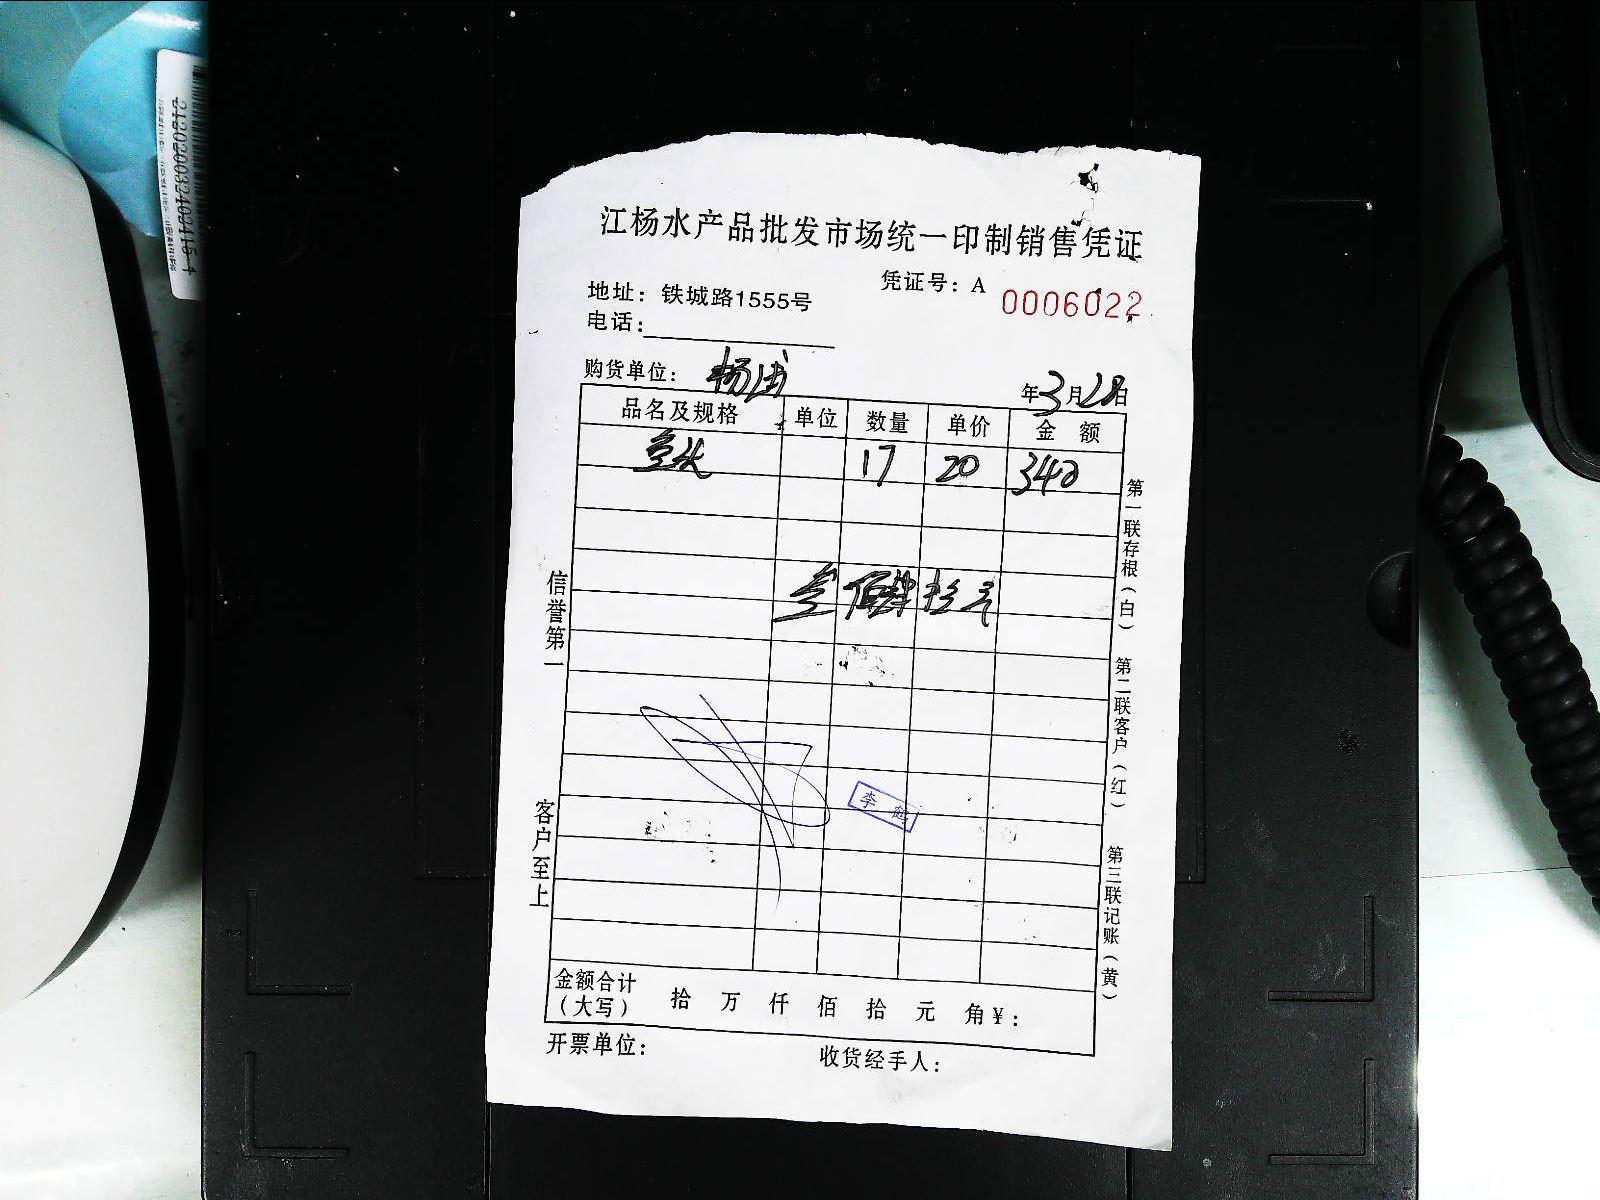 212020032403416-1
江杨水产品批发市场统一印制销售凭证
凭证号：A 0006022
地址：铁城路1555号
电话：
购货单位： 杨浦
年3月28日
品名及规格 单位 数量 单价 金 额
鱼头 17 20 340
叁佰肆拾元
信誉第一
客户至上
第一联存根（白）
第二联客户（红）
第三联记账（黄）
李
金额合计
（大写） 拾 万 仟 佰 拾 元 角￥：
开票单位：
收货经手人：